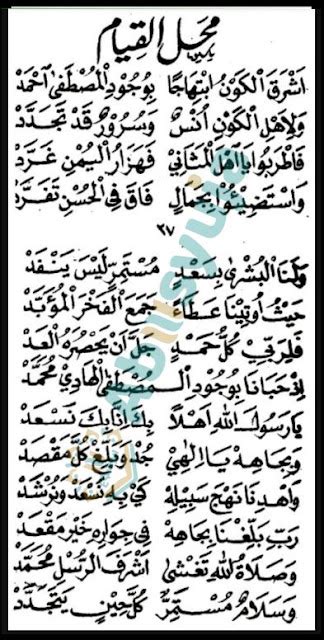 محل القيام
اَشْرَقَ الْكَوْنُ ابْتِهَاجًا بِوُجُودِ الْمُصْطَفَى احْمَدْ
وَلِاَهْلِ الْكَوْنِ اُنْسٌ وَسُرُورٌ قَدْ تَجَدَّدْ
فَاطْرَبُوا يَا اَهْلَ الْمَثَانِي فَهَزَارُ الْيُمْنِ غَرَّدْ
وَاسْتَضِيْئُوا بِجَمَالٍ فَاقَ فِي الْحُسْنِ تَفَرَّدْ
٢٧
وَلَنَا الْبُشْرَى بِسَعْدٍ مُسْتَمِرٍّ لَيْسَ يَنْفَدْ
حَيْثُ اُوتِيْنَا عَطَاءً جَمَعَ الْفَخْرَ الْمُؤَبَّدْ
فَلِرَبِّي كُلُّ حَمْدٍ جَلَّ اَنْ يَحْصُرَهُ الْعَدّ
اِذْ حَبَانَا بِوُجُودِ الْمُصْطَفَى الْهَادِي مُحَمَّدْ
يَا رَسُولَ اللهِ اَهْلًا بِكَ اِنَّا بِكَ نُسْعَدْ
وَبِجَاهِهْ يَا اِلٰهِيْ جُدْ وَبَلِّغْ كُلَّ مَقْصَدْ
وَاهْدِنَا نَهْجَ سَبِيْلِهْ كَيْ بِهِ نُسْعَدْ وَنُرْشَدْ
رَبِّ بَلِّغْنَا بِجَاهِهْ فِي جِوَارِهِ خَيْرَ مَقْعَدْ
وَصَلَاةُ اللهِ تَغْشَى اَشْرَفَ الرُّسْلِ مُحَمَّدْ
وَسَلَامٌ مُسْتَمِرٌّ كُلَّ حِيْنٍ يَتَجَدَّدْ